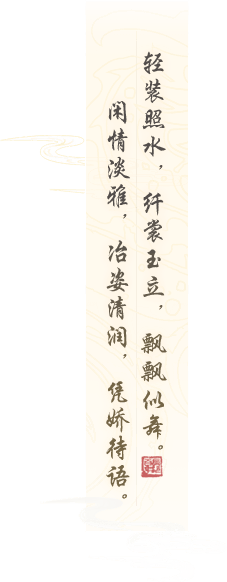 轻装照水，纤裳玉立，飘飘似舞。
闲情淡雅，冶姿清润，凭娇待语。